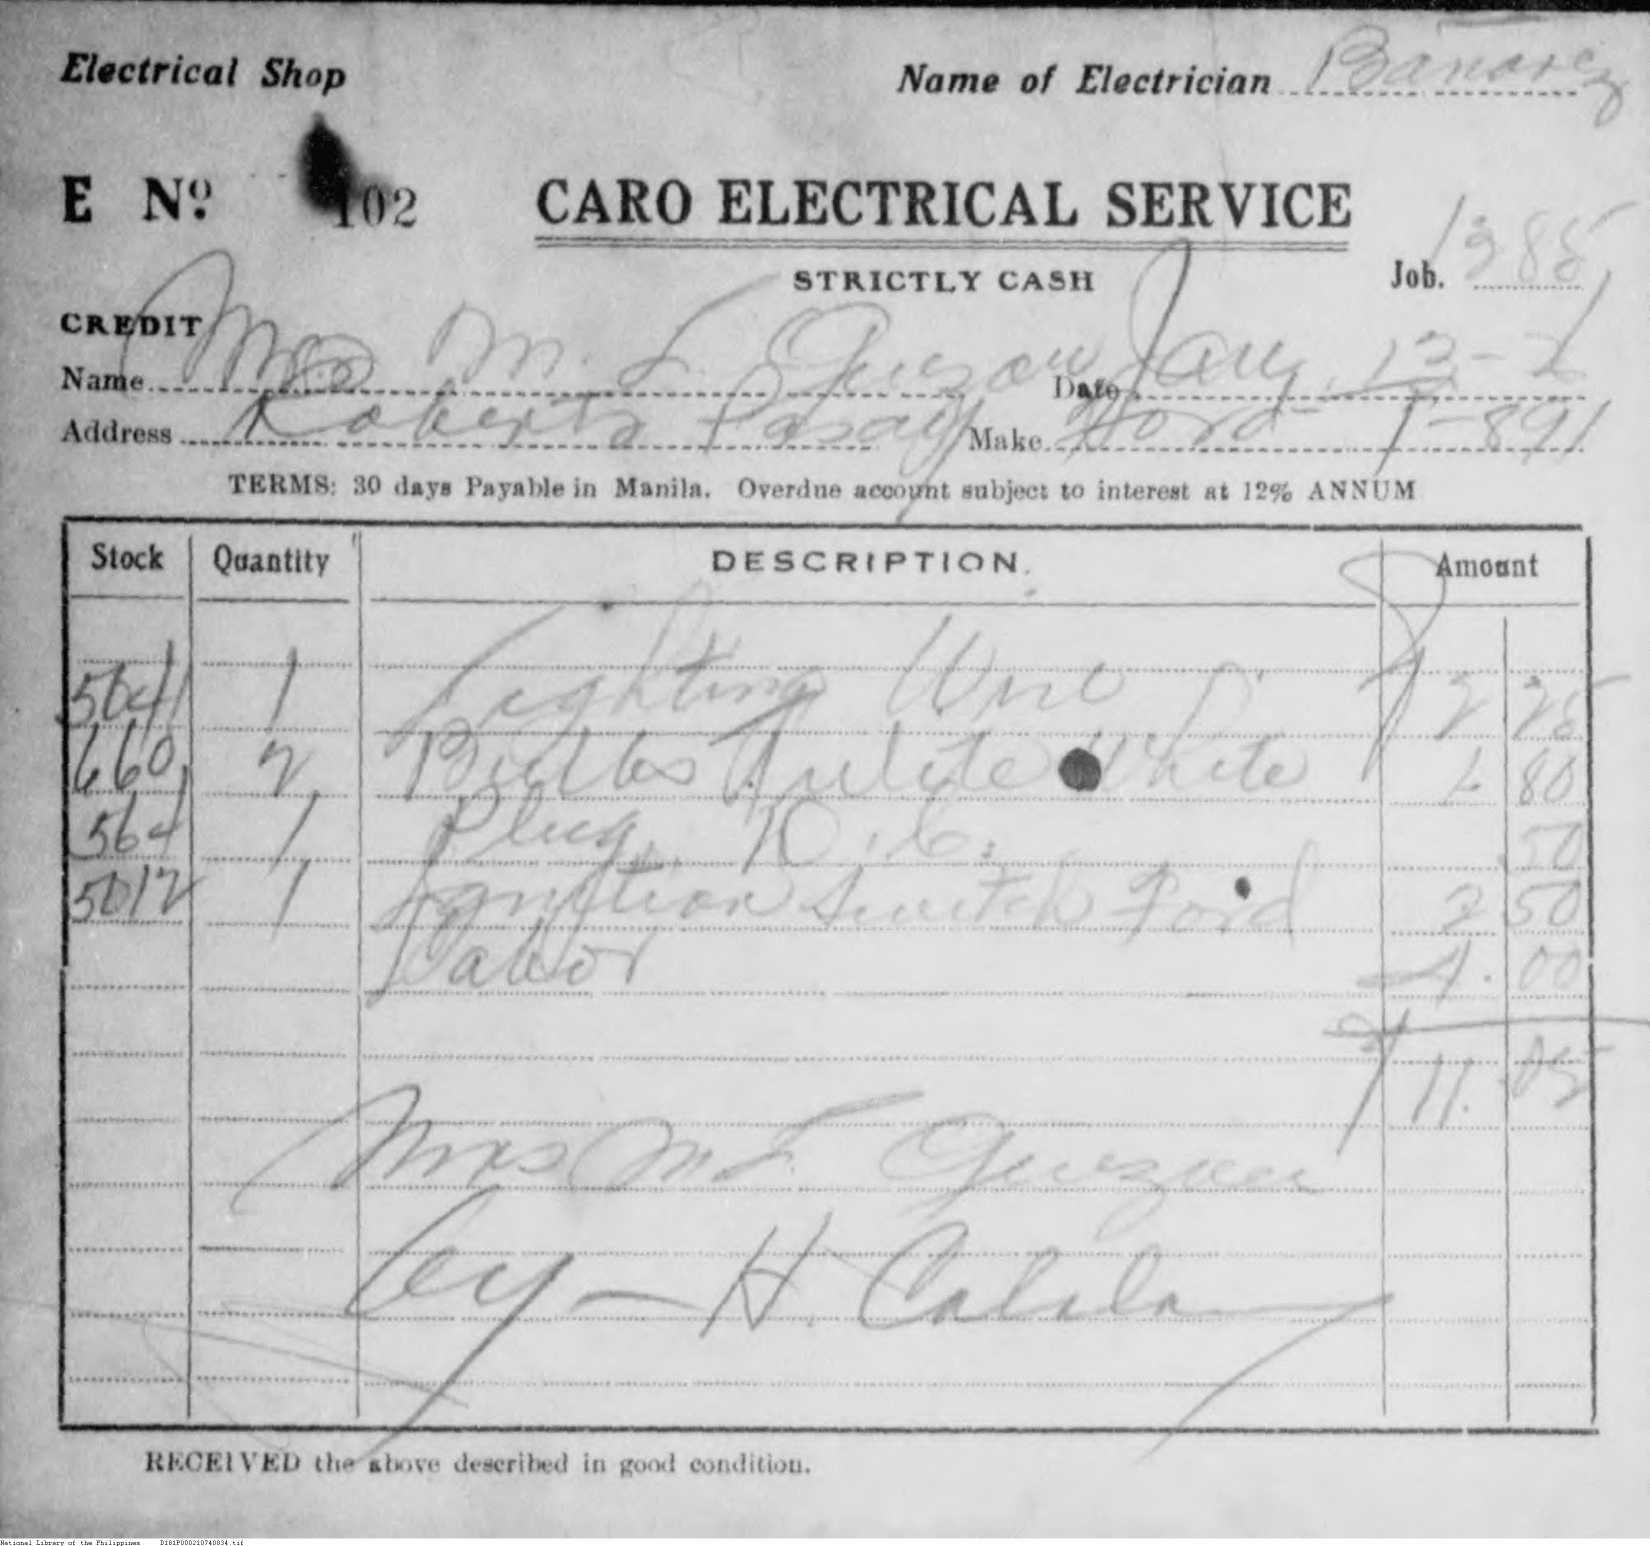 Electrical Shop
Name of Electrician Banarez
E Nº 102
CARO ELECTRICAL SERVICE
STRICTLY CASH
Job. 1285
CREDIT
Name Mrs M. L. Guzon Date Jan. 12-
Address Roberts Pasay Make Ford T-891
TERMS: 30 days Payable in Manila. Overdue account subject to interest at 12% ANNUM
Stock Quantity DESCRIPTION. Amount
5041 1 Lighting Wire 2 25
660 2 Bulbs White 1 80
564 1 Plug D.C. .50
5012 1 Ignition Switch Ford 2 50
Labor 4.00
11.05
Mrs M L Guzon
by - H. Calala
RECEIVED the above described in good condition.
National Library of the Philippines D181P000210740834.tif